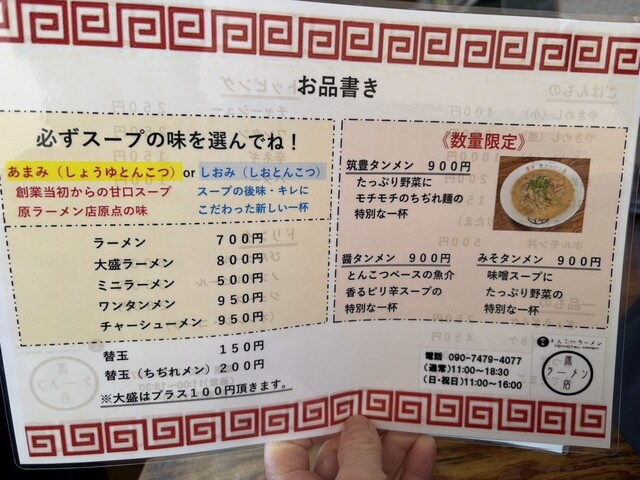 お品書き
必ずスープの味を選んでね!
あまみ（しょうゆとんこつ） or しおみ（しおとんこつ）
創業当初からの甘口スープ
原ラーメン店原点の味
スープの後味・キレに
こだわった新しい一杯
ラーメン 700円
大盛ラーメン 800円
ミニラーメン 500円
ワンタンメン 950円
チャーシューメン 950円
替玉 150円
替玉（ちぢれメン）200円
※大盛はプラス100円頂きます。
《数量限定》
筑豊タンメン 900円
たっぷり野菜に
モチモチのちぢれ麺の
特別な一杯
醤タンメン 900円
とんこつベースの魚介
香るピリ辛スープの
特別な一杯
みそタンメン 900円
味噌スープに
たっぷり野菜の
特別な一杯
電話 090-7479-4077
（通常）11:00～18:30
（日・祝日）11:00～16:00
とんこつラーメン
原
ラーメン
店